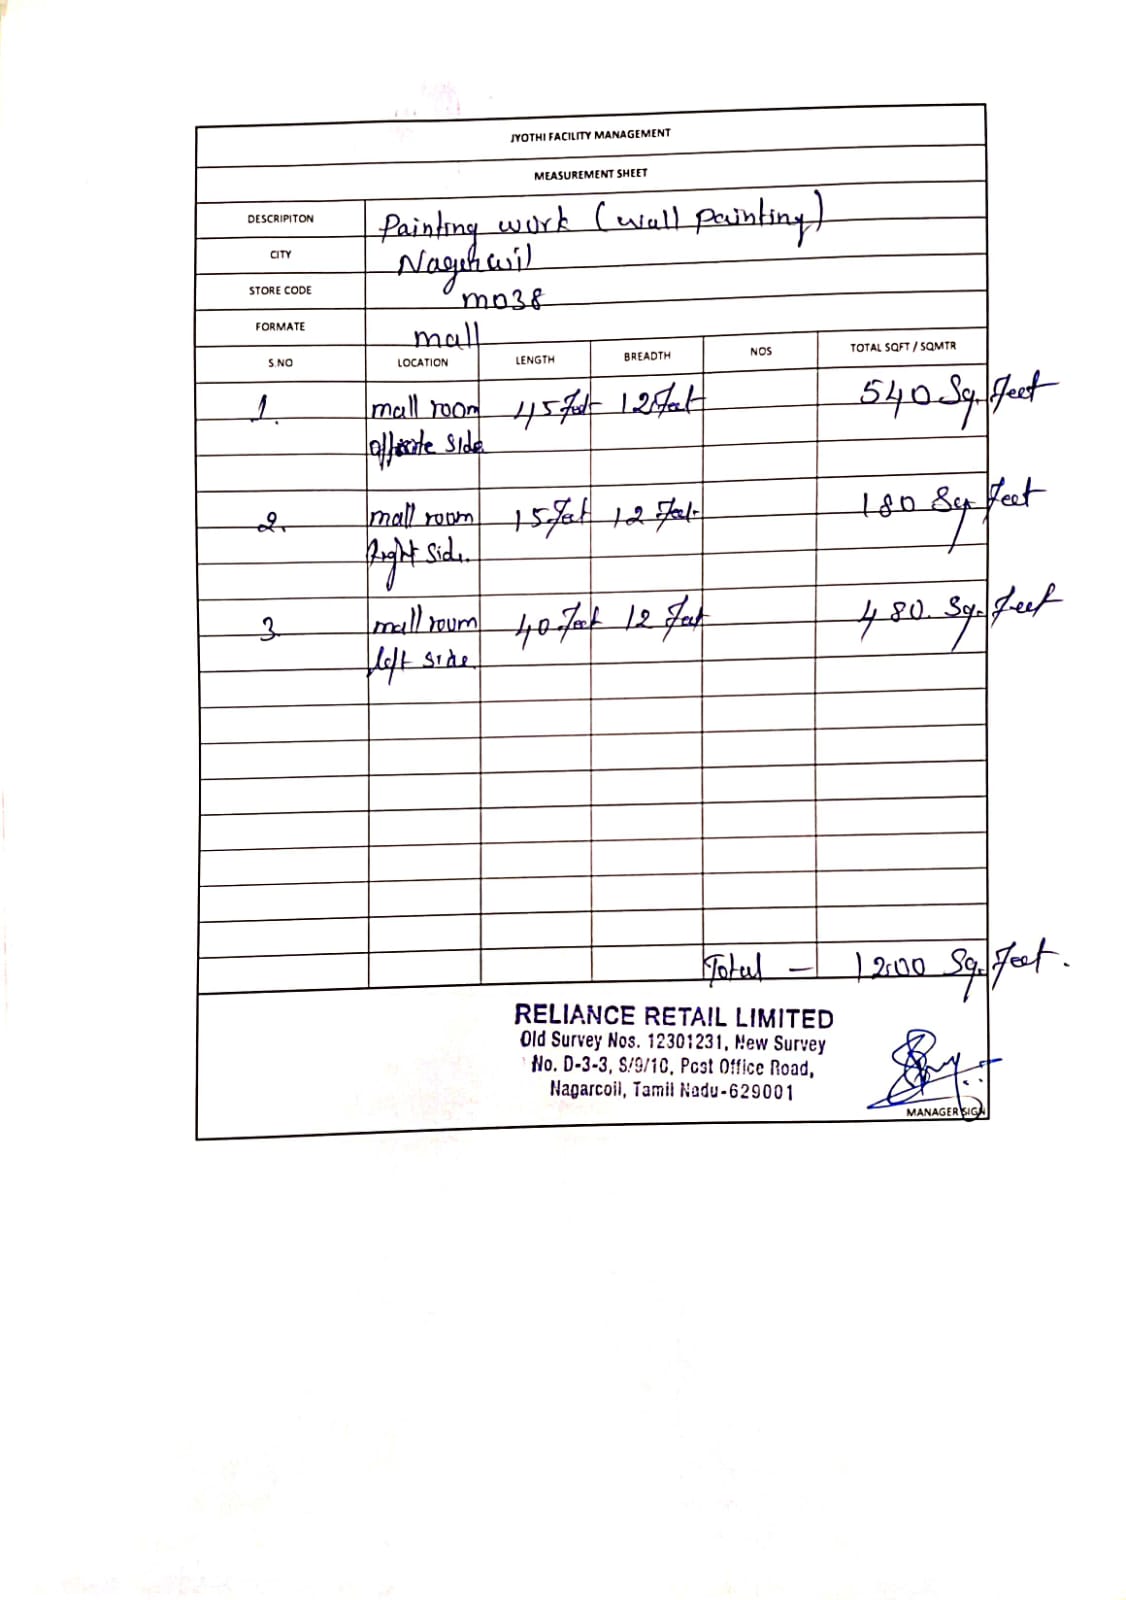 JYOTHI FACILITY MANAGEMENT
MEASUREMENT SHEET
DESCRIPITON Painting work (wall painting)
CITY
STORE CODE m038
FORMATE mall
S.NO LOCATION LENGTH BREADTH NOS TOTAL SQFT / SQMTR
1. mall room 45 Feet 12 Feet 540 Sq. Feet
side
2. mall room 15 Feet 12 Feet 180 Sq. Feet
Right Side.
3. mall room 40 Feet 12 Feet 480. Sq. Feet
left side
Total - 1200 Sq. Feet.
RELIANCE RETAIL LIMITED
Old Survey Nos. 12301231, New Survey
No. D-3-3, S/9/10, Post Office Road,
Nagarcoil, Tamil Nadu-629001
MANAGER SIGN